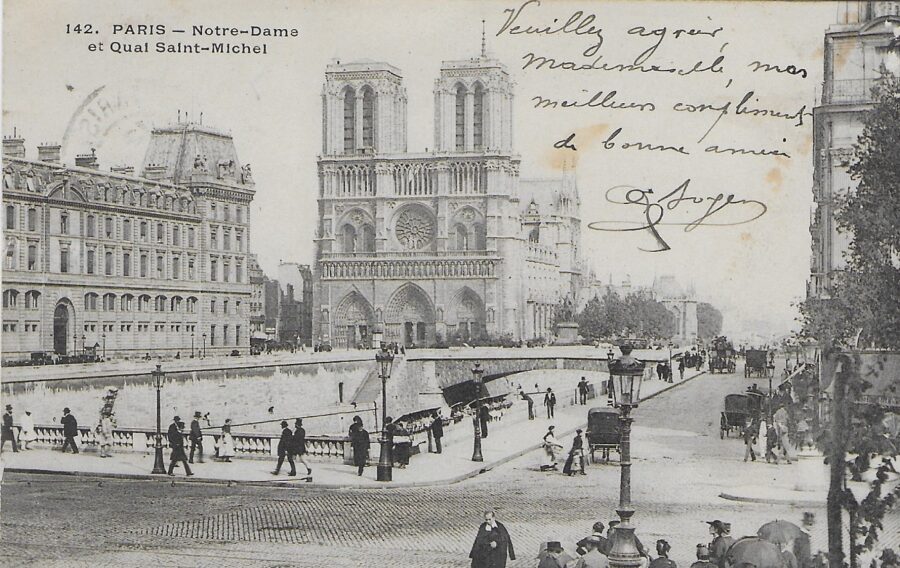 142. PARIS — Notre-Dame
et Quai Saint-Michel
Veuillez agréer,
Mademoiselle, mes
meilleurs compliments
de bonne année
PARIS